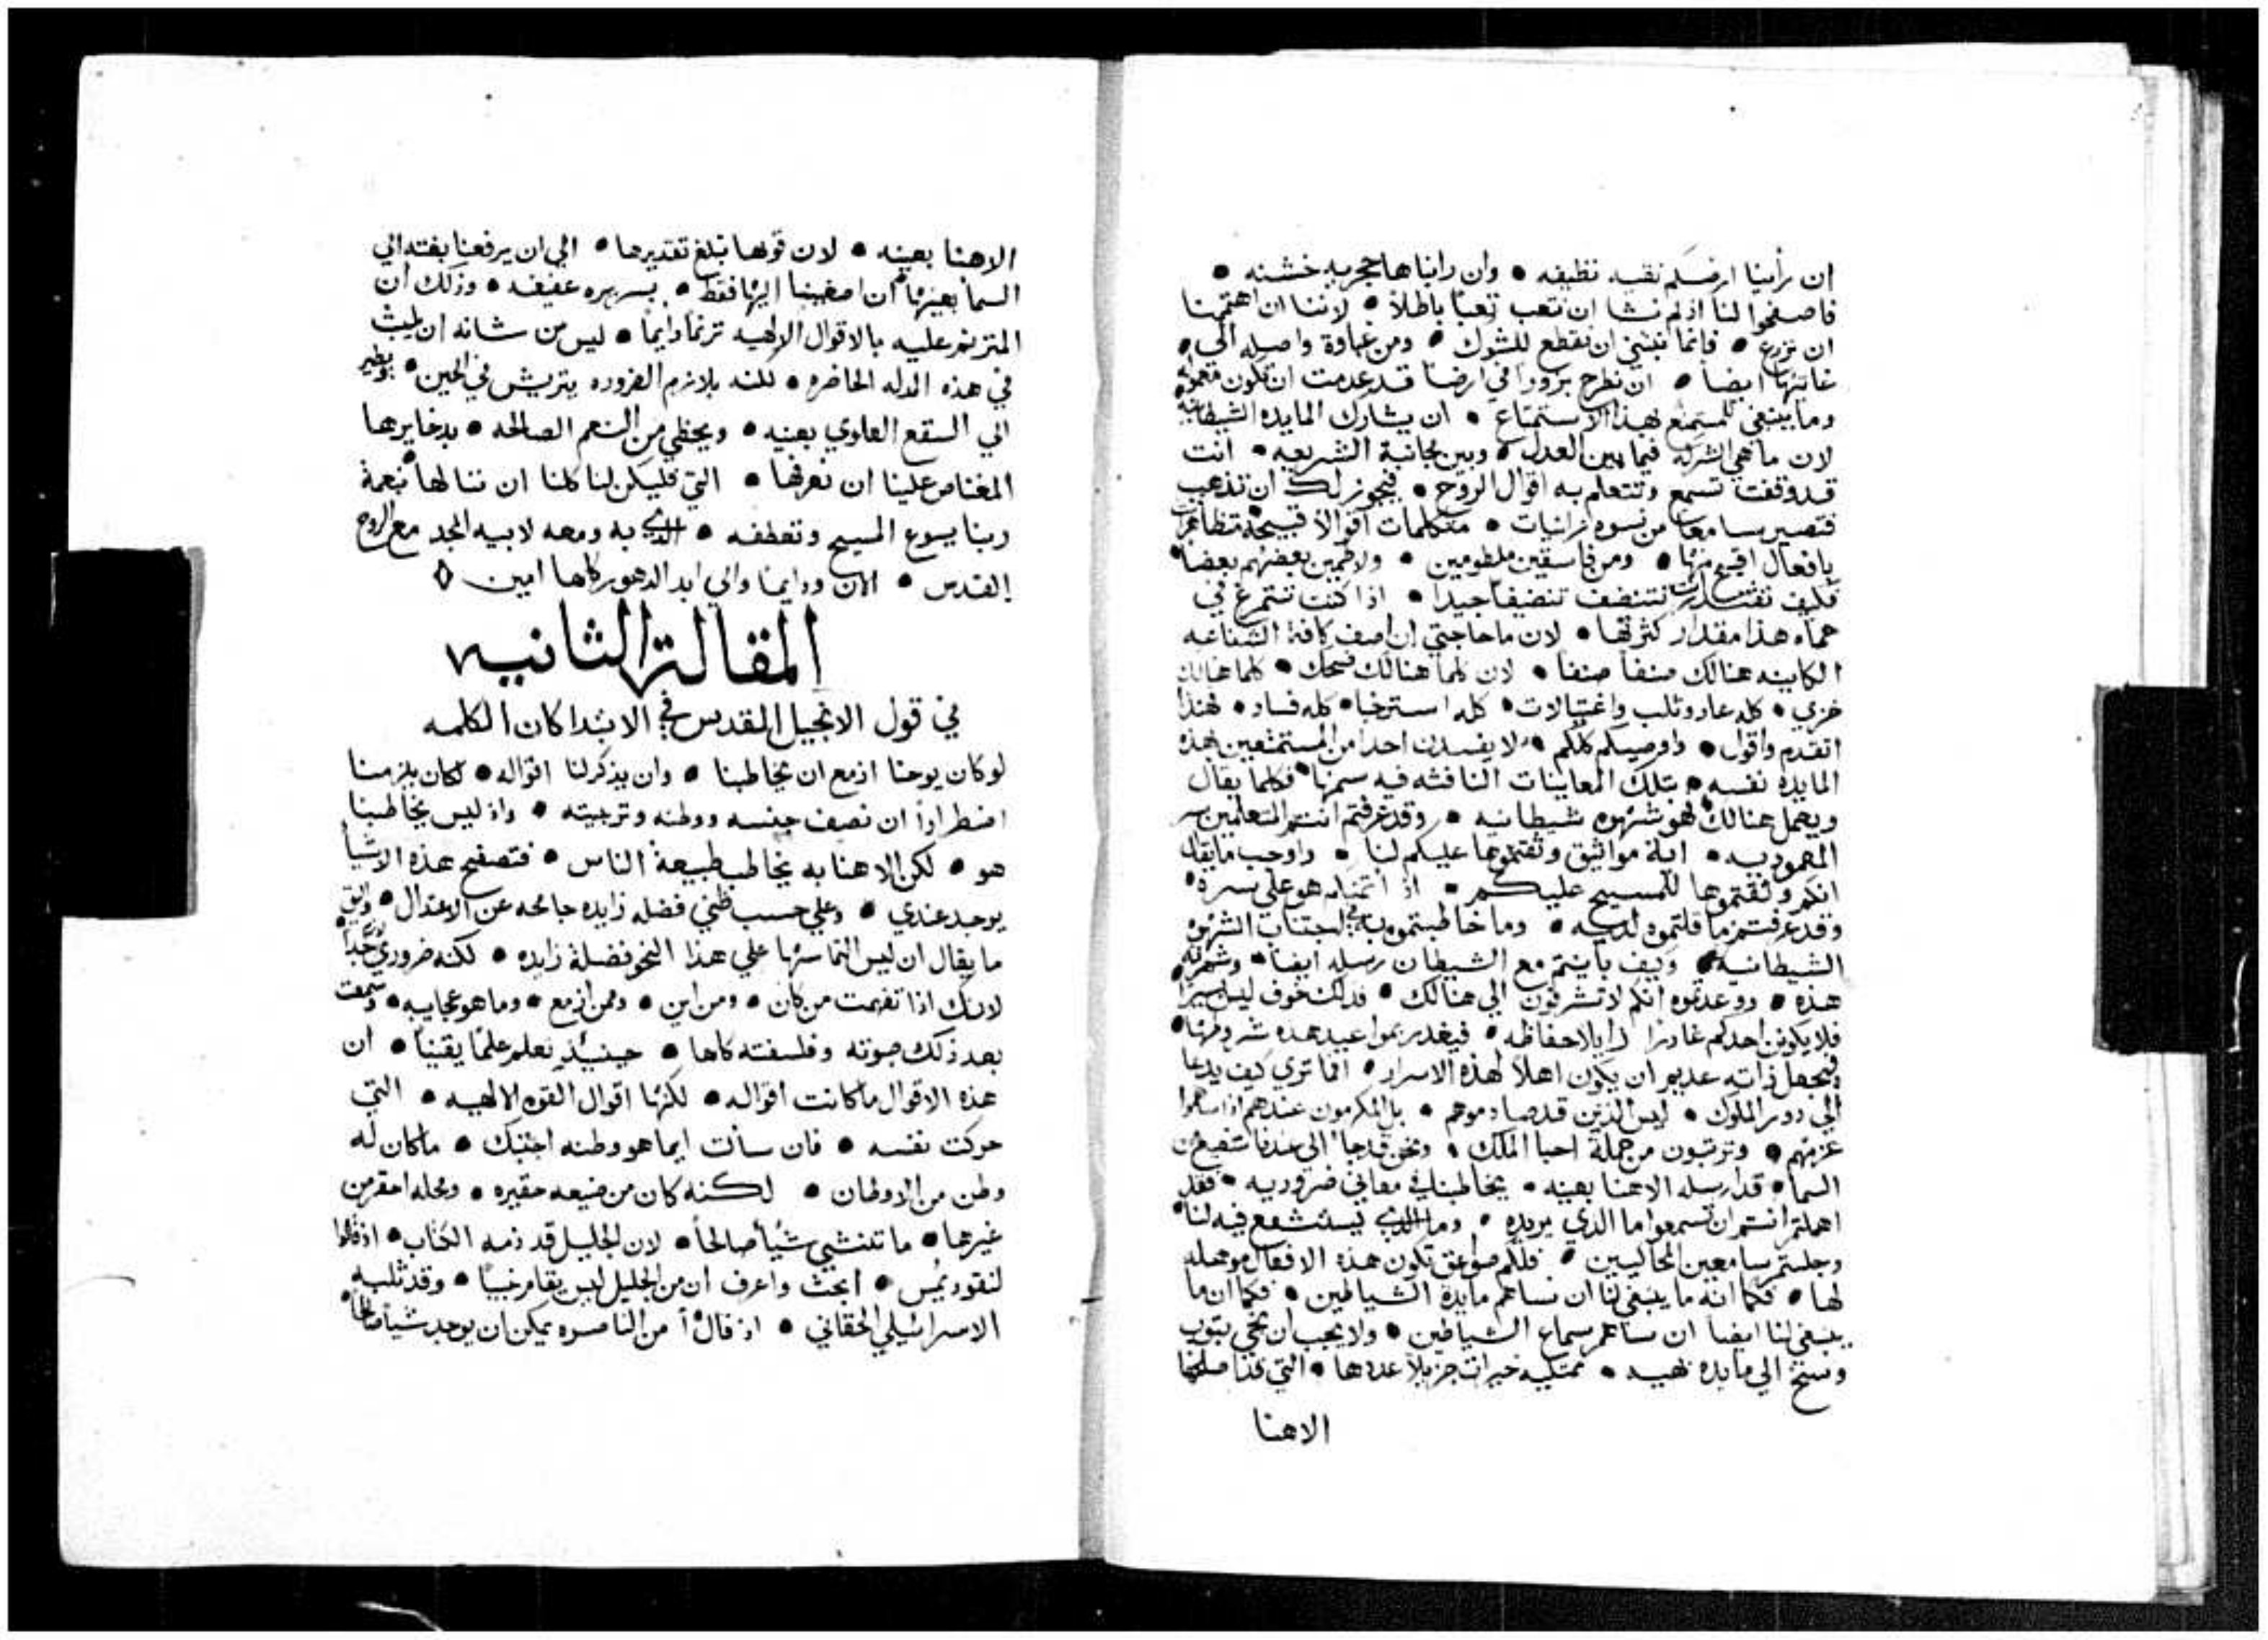 ان رأينا ارضكم نقيه نظيفه • وان رايناها حجريه خشنه •
فاصفحوا لنا اذ لم نشا ان نتعب تعباً باطلاً • لاننا ان اهتممنا
ان نزرع • فانما ينبغي ان نقطع للشوك • ومن غباوة واصله الي
غايتها ايضاً • ان نطرح بزوراً في ارضاً قد عدمت ان تكون معموله
وما ينبغي للمستمتع بهذا الاستمتاع • ان يشارك المايده الشيطانيه
لان ما هي الشركه فيما بين العدل • وبين مجانبة الشريعه • انت
قد وقفت تسمع وتتعلم به اقوال الروح • فيجوز لك ان تذهب
فتصير سامعاً من نسوه زانيات • متكلمات اقوالاً قبيحة متظاهرات
بافعال اقبح منها • ومن فاسقين ملطومين • ولاطمين بعضهم بعضاً
فكيف تقتدر ان تتنضف تنضيفاً جيداً • اذا كنت تتمرغ في
حماه هذا مقدار كثرتها • لان ما حاجتي ان اصف كافة الشناعه
الكاينه هنالك صنفاً صنفاً • لان كلما هنالك ضحك • كلما هنالك
خزي • كله عار وثلب واغتيالات • كله استرخا • كله فساد • فهنذا
اتقدم واقول • واوصيكم كلكم • لا يفسدن احداً من المستمتعين بهذه
المايده نفسه • بتلك المعاينات النافثه فيه سمها • فكلما يقال
ويعمل هنالك فهو شهوه شيطانيه • وقد عرفتم انتم المتعلمين سر
المعموديه • اية مواثيق وثقتموها عليكم لنا • واوجب ما يقال
انكم وثقتموها للمسيح عليكم • اذ اتمنكم هو على سره
وقد عرفتم ما قلتموه لديه • وما خاطبتموه به في اجتناب الشرور
الشيطانيه • وكيف باينتم مع الشيطان رسله ايضاً • وشهرته
هذه • ووعدتموه انكم لا تشرفون الي هنالك • فذلك خوف ليس يسيراً
فلا يكونن احدكم غادراً
فيجعل ذاته عديم ان يكون اهلاً لهذه الاسرار • افما تري كيف يدعا
الي دور الملوك • ليس الذين قد صادموهم • بل المكرمون عندهم
عزهم • وترتبون من جملة احبا الملك • ونحن قد جا الي عندنا شفيع من
السما • قد ارسله الاهنا بعينه • يخاطبنا في معاني ضروريه • فقد
اهملتم انتم ان تسمعوا ما الذي يريده • وما الذي يستشفع فيه لنا
وجلستم سامعين المحاليين • فلكم صواعق تكون هذه الافعال موهله
لها • فكما انه ما ينبغي لنا ان نساهم مايدة الشياطين • فكما ان ما
ينبغي لنا ايضاً ان نساهم سماع الشياطين • ولا يجب ان نجي بثوب
وسخ الي مايده بهيه • ممتليه خيرات جزيلاً عددها • التي قد اصلحها
الاهنا
الاهنا بعينه • لان قوتها تبلغ تقديرها • الي ان يرفعنا بغته الي
السما بعينها ان اصغينا اليها فقط • بسريره عفيفه • وذلك ان
المترنم عليه بالاقوال الالهيه ترنماً دايماً • ليس من شانه ان يلبث
في هذه الذله الحاضره • لكنه يلازم الضروره يتريش في الحين • ويطير
الي السقع العلوي بعينه • ويحظي من النعم الصالحه • بدخايرها
المغتاص علينا ان نعرفها • التي فليكن لنا كلنا ان ننالها بنعمة
ربنا يسوع المسيح وتعطفه • الذي به ومعه لابيه المجد مع الروح
القدس • الان ودايما والي ابد الدهور كلها امين ◊
المقالة الثانيه
في قول الانجيل المقدس في الابتدا كان الكلمه
لو كان يوحنا ازمع ان يخاطبنا • وان يذكر لنا اقواله • لكان يلزمنا
اضطراراً ان نصف جنسه ووطنه وتربيته • واذ ليس يخاطبنا
هو • لكن الاهنا به يخاطب طبيعة الناس • فتصفح هذه الاشيا
يوجد عندي • وعلي حسب ظني فضله زايده جامحه عن الاعتدال • واليق
ما يقال ان ليس التماسها علي هذا النحو فضلة زايده • لكنه ضروري جداً
لانك اذا تفهمت من كان • ومن اين • وممن ازمع • وما هو عجايبه • وسمعت
بعد ذلك صوته وفلسفته كلها • حينيذٍ تعلم علماً يقيناً • ان
هذه الاقوال ما كانت اقواله • لكنها اقوال القوه الالهيه • التي
حركت نفسه • فان سألت ايما هو وطنه اجبتك • ما كان له
وطن من الاوطان • لكنه كان من ضيعه حقيره • ومحله احقر من
غيرها • ما تنشي شياً صالحاً • لان الجليل قد ذمه الكتاب • اذ قالوا
لنقوديمس • ابحث واعرف ان من الجليل ليس يقام نبياً • وقد ثلبه
الاسرائيلي الحقاني • اذ قال أ من الناصره يمكن ان يوجد شياً صالحاً